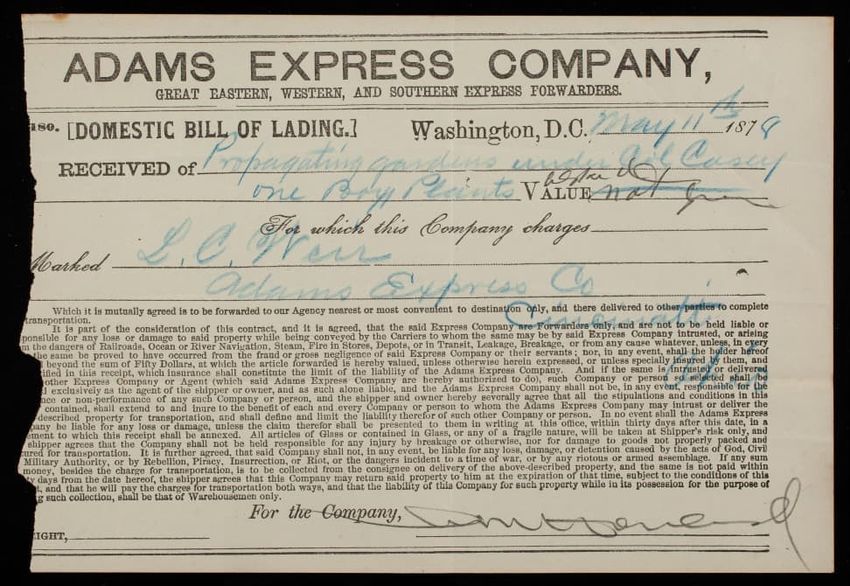 ADAMS EXPRESS COMPANY,
GREAT EASTERN, WESTERN, AND SOUTHERN EXPRESS FORWARDERS.
180. [DOMESTIC BILL OF LADING.] Washington, D.C. May 11th 1878
RECEIVED of Propagating gardens under Col Casey
one Box Plants VALUE not given
For which this Company charges
Marked L. C. Weir
Adams Express Co
Cincinnati
Ohio
Which it is mutually agreed is to be forwarded to our Agency nearest or most convenient to destination only, and there delivered to other parties to complete
transportation.
It is part of the consideration of this contract, and it is agreed, that the said Express Company are Forwarders only, and are not to be held liable or
ponsible for any loss or damage to said property while being conveyed by the Carriers to whom the same may be by said Express Company intrusted, or arising
m the dangers of Railroads, Ocean or River Navigation, Steam, Fire in Stores, Depots, or in Transit, Leakage, Breakage, or from any cause whatever, unless, in every
the same be proved to have occurred from the fraud or gross negligence of said Express Company or their servants; nor, in any event, shall the holder hereof
d beyond the sum of Fifty Dollars, at which the article forwarded is hereby valued, unless otherwise herein expressed, or unless specially insured by them, and
ified in this receipt, which insurance shall constitute the limit of the liability of the Adams Express Company. And if the same is intrusted or delivered
other Express Company or Agent (which said Adams Express Company are hereby authorized to do), such Company or person so selected shall be
d exclusively as the agent of the shipper or owner, and as such alone liable, and the Adams Express Company shall not be, in any event, responsible for the
nce or non-performance of any such Company or person, and the shipper and owner hereby severally agree that all the stipulations and conditions in this
contained, shall extend to and inure to the benefit of each and every Company or person to whom the Adams Express Company may intrust or deliver the
described property for transportation, and shall define and limit the liability therefor of such other Company or person. In no event shall the Adams Express
pany be liable for any loss or damage, unless the claim therefor shall be presented to them in writing at this office, within thirty days after this date, in a
ement to which this receipt shall be annexed. All articles of Glass or contained in Glass, or any of a fragile nature, will be taken at Shipper's risk only, and
shipper agrees that the Company shall not be held responsible for any injury by breakage or otherwise, nor for damage to goods not properly packed and
ured for transportation. It is further agreed, that said Company shall not, in any event, be liable for any loss, damage, or detention caused by the acts of God, Civil
Military Authority, or by Rebellion, Piracy, Insurrection, or Riot, or the dangers incident to a time of war, or by any riotous or armed assemblage. If any sum
money, besides the charge for transportation, is to be collected from the consignee on delivery of the above-described property, and the same is not paid within
ty days from the date hereof, the shipper agrees that this Company may return said property to him at the expiration of that time, subject to the conditions of this
t, and that he will pay the charges for transportation both ways, and that the liability of this Company for such property while in its possession for the purpose of
g such collection, shall be that of Warehousemen only.
For the Company,
IGHT,